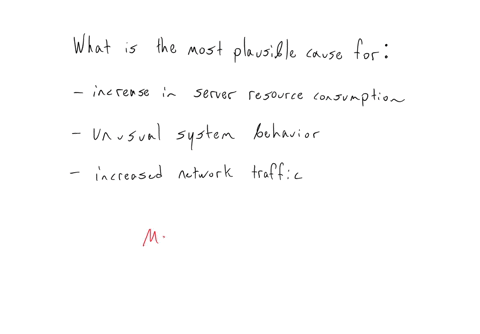 What is the most plausible cause for:
- increase in server resource consumption
- unusual system behavior
- increased network traffic
M.